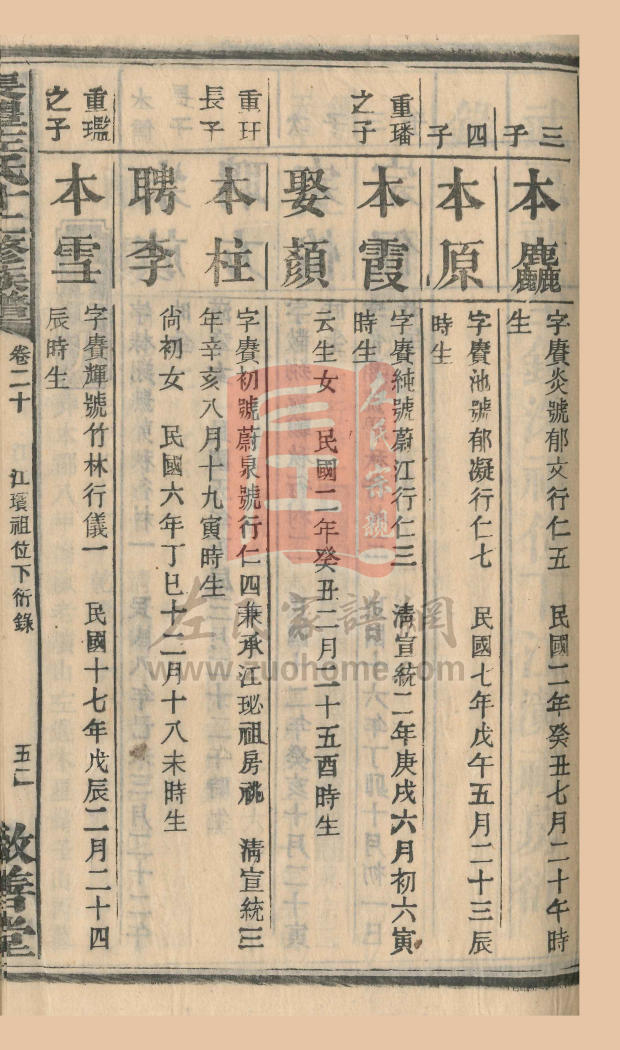 三子
本麤
字賡炎號郁文行仁五　民國二年癸丑七月二十午時
生
四子
本原
字賡池號郁凝行仁七　民國七年戊午五月二十三辰
時生
重璠之子
本霞
字賡純號蔚江行仁三　清宣統二年庚戌六月初六寅
時生
娶顏
云生女　民國二年癸丑二月二十五酉時生
重玕長子
本柱
字賡初號蔚泉號行仁四兼承江珌祖房祧　清宣統三
年辛亥八月十九寅時生
聘李
尙初女　民國六年丁巳十二月十八未時生
重瓛之子
本雪
字賡輝號竹林行儀一　民國十七年戊辰二月二十四
辰時生
左氏十二修族譜
卷二十
江璸祖位下衍錄
五二
敦善堂
左氏家譜網
www.zuohome.com